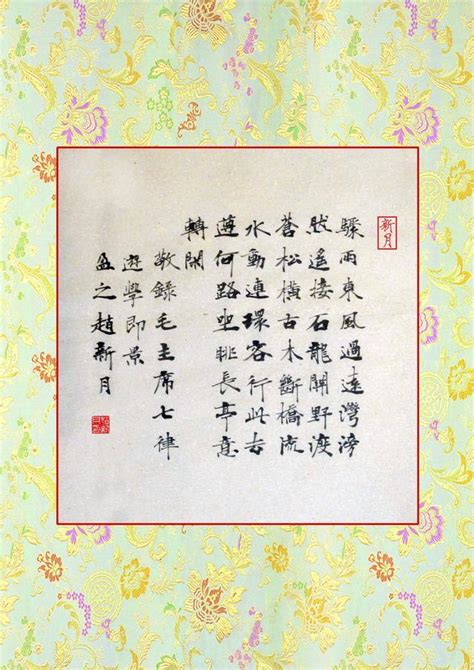 新月
驟雨東風過遠灣滂
然遙接石龍關野渡
蒼松橫古木斷橋流
水動連環客行此去
遵何路坐眺長亭意
轉閑
敬錄毛主席七律
遊學即景
盈之趙新月